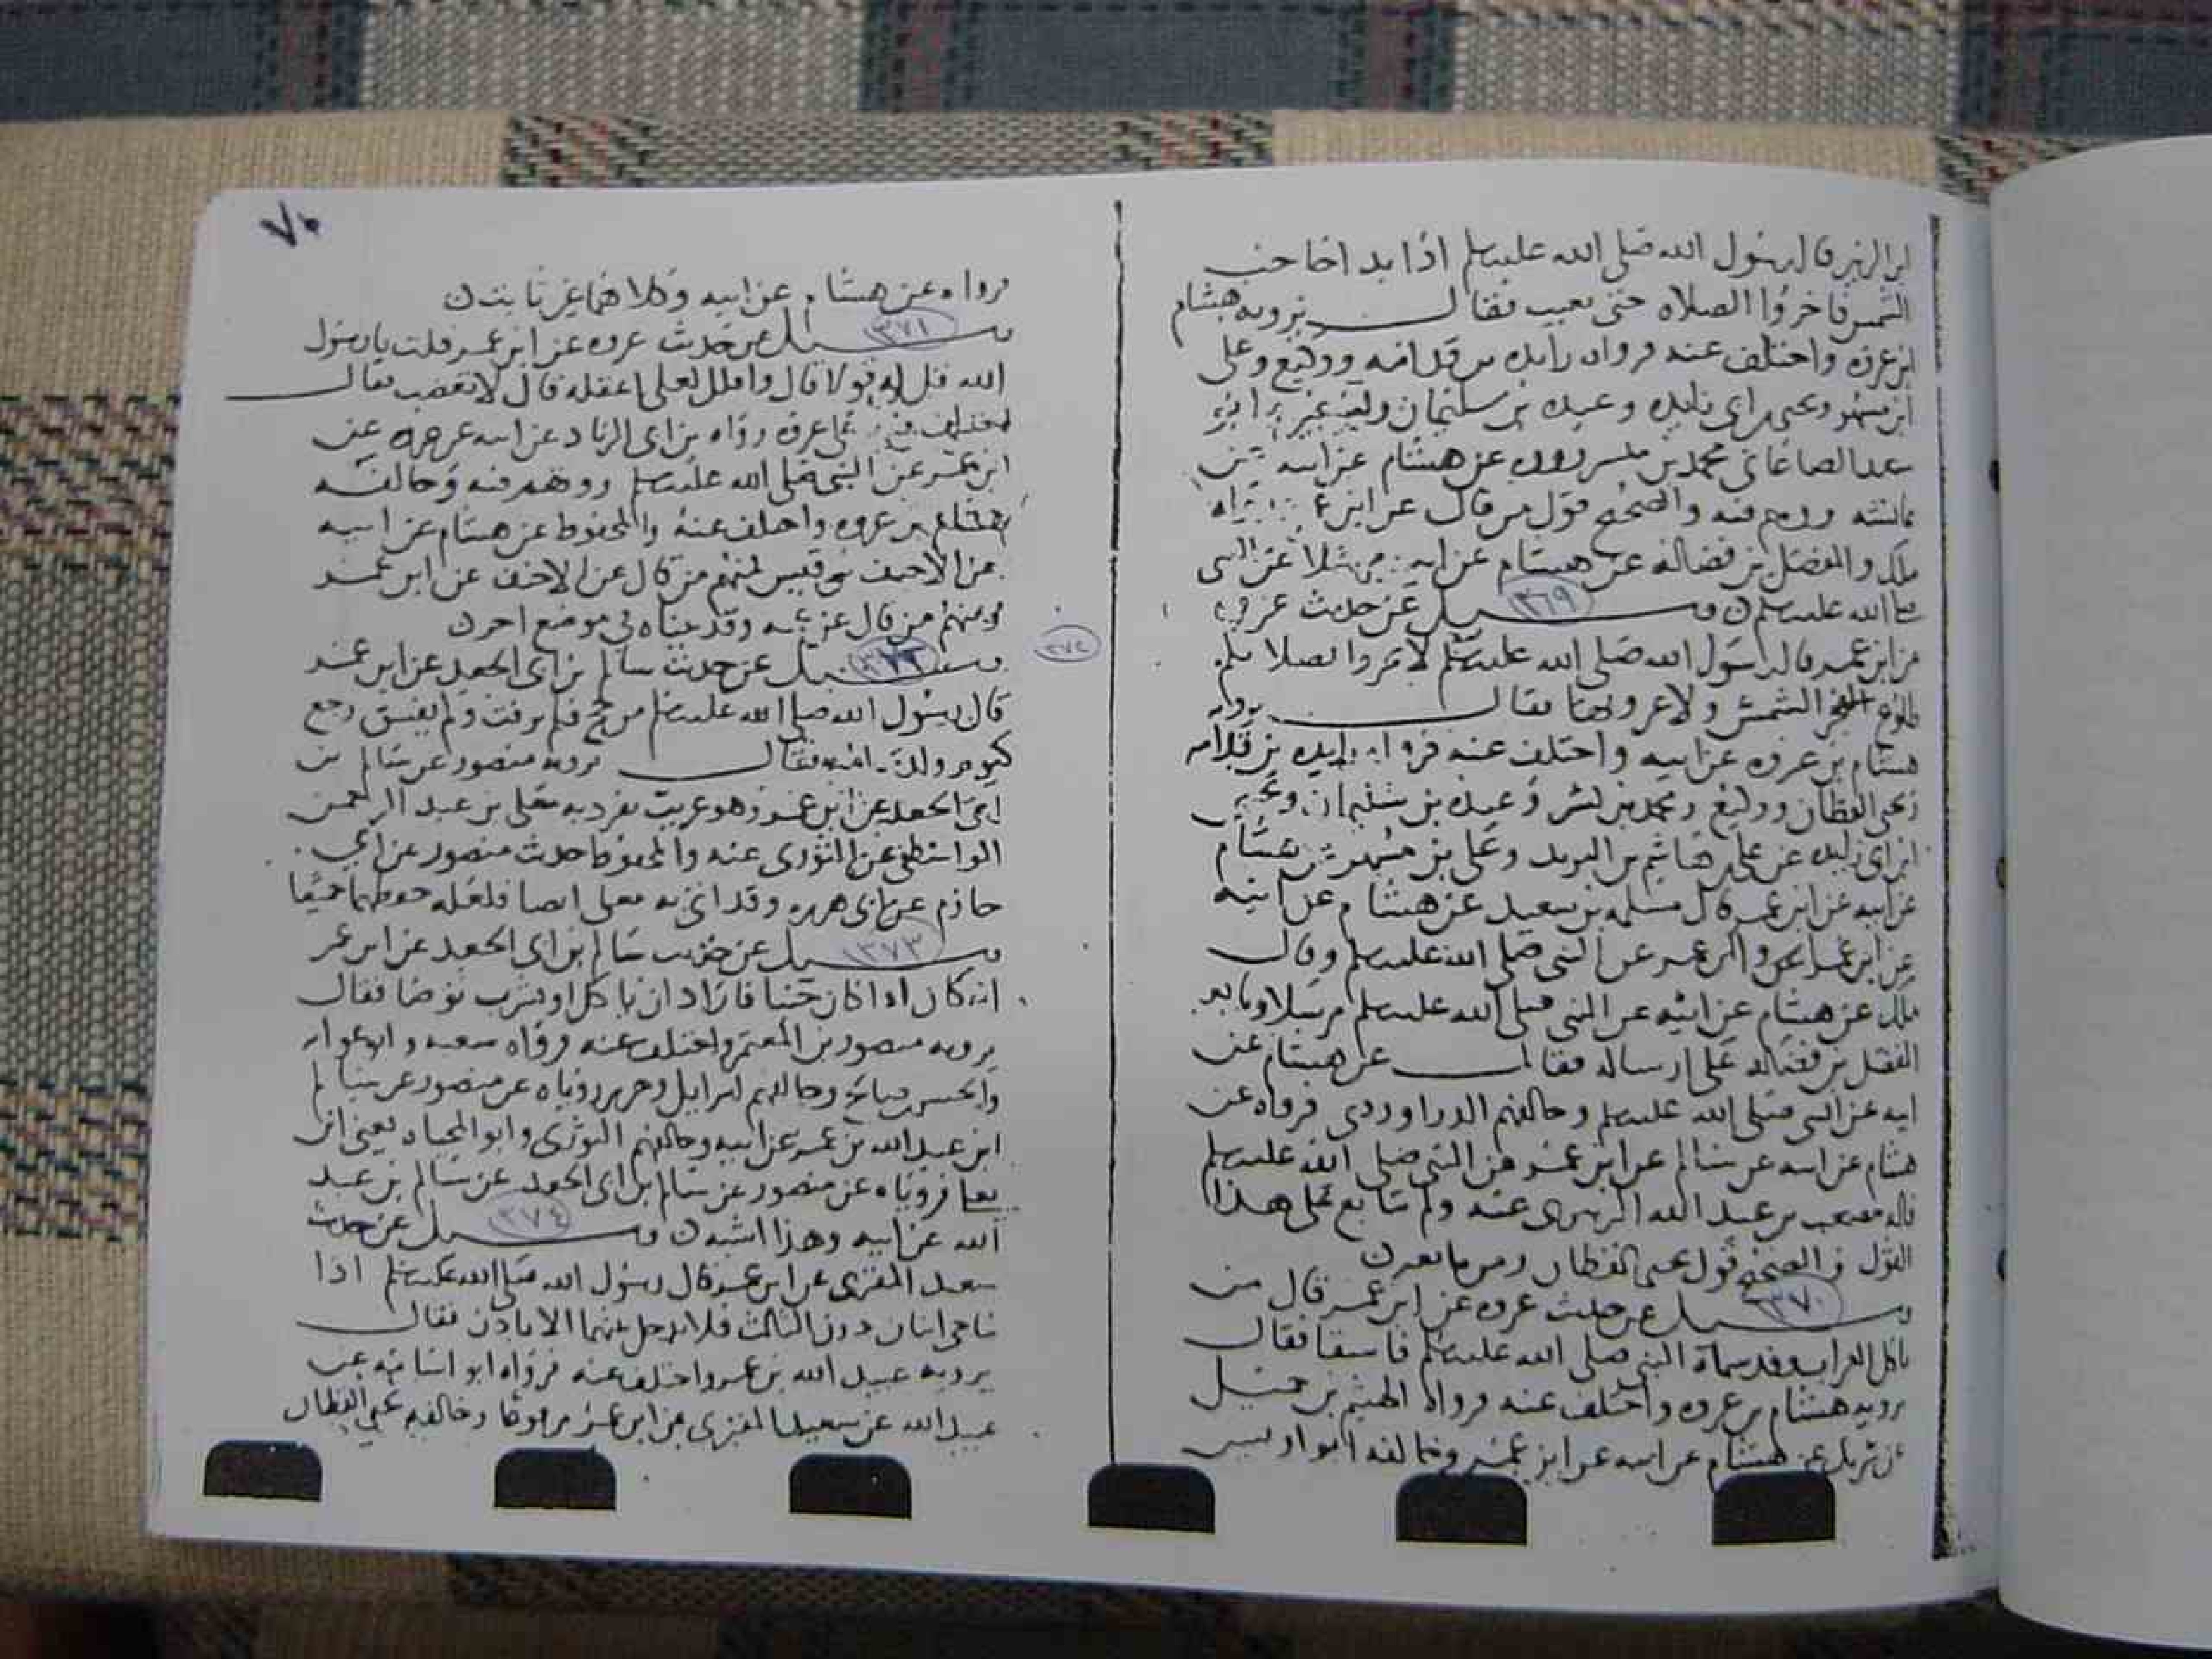 ابن الزبير قال رسول الله صلى الله عليه وسلم اذا بدا حاجب
الشمس فاخروا الصلاه حتى تغيب فقال يرويه هشام
ابن عروه واختلف عنه فرواه زايده بن قدامه ووكيع وعلى
ابن مسهر ويحيى بن ابى زايده وعبده بن سليمان
سعد الصاغانى محمد بن ميسر رووه عن هشام عن ابيه عن
عايشه ووهم فيه والصحيح قول من قال عن ابن عمر ورواه
ملك والمفضل بن فضاله عن هشام عن ابيه مرسلا عن النبى
صلى الله عليه وسلم ن وسيل عن حديث عروه ٣٦٩
عن ابن عمر قال رسول الله صلى الله عليه وسلم لا تحروا بصلاتكم
طلوع الشمس ولا غروبها فقال يرويه
هشام بن عروه عن ابيه واختلف عنه فرواه زايده بن قدامه
ويحيى القطان ووكيع ومحمد بن بشر وعبده بن سليمان ويحيى
ابن ابى زايده عن على بن هاشم بن البريد وعلى بن مسهر عن هشام
عن ابيه عن ابن عمر قال مسلمه بن سعيد عن هشام عن ابيه
عن ابن عمر عن النبى صلى الله عليه وسلم وقال
ملك عن هشام عن ابيه عن النبى صلى الله عليه وسلم مرسلا وتابعه
المفضل بن فضاله على ارساله فقال عن هشام عن
ابيه عن النبى صلى الله عليه وسلم وخالفهم الدراوردى فرواه عن
هشام عن ابيه عن سالم عن ابن عمر عن النبى صلى الله عليه وسلم
قاله مصعب بن عبد الله الزبيرى عنه ولم يتابع على هذا
القول والصحيح قول يحيى القطان ومن تابعه ن
وسيل عن حديث عروه عن ابن عمر قال من ٣٧٠
ياكل الغراب وقد سماه النبى صلى الله عليه وسلم فاسقا فقال
يرويه هشام بن عروه واختلف عنه فرواه الهيثم بن جميل
عن شريك عن هشام عن ابيه عن ابن عمر وخالفه ابو اويس
٧٠
فرواه عن هشام عن ابيه وكلاهما غير ثابت ن
وسيل عن حديث عروه عن ابن عمر قلت يا رسول ٣٧١
الله قل لى قولا قال واقلل لعلى اعقله قال لا تغضب فقال
اختلف فيه على عروه رواه بن ابى الزناد عن ابيه عن عروه عن
ابن عمر عن النبى صلى الله عليه وسلم ووهم فيه وخالفه
هشام بن عروه واختلف عنه والمحفوظ عن هشام عن ابيه
عن الاحنف بن قيس فمنهم من قال عن الاحنف عن ابن عمه
ومنهم من قال عن عمه وقد بيناه فى موضع اخر ن
وسيل عن حديث سالم بن ابى الجعد عن ابن عمر ٣٧٢
قال رسول الله صلى الله عليه وسلم من حج فلم يرفث ولم يفسق رجع
كيوم ولدته امه فقال يرويه منصور عن سالم بن
ابى الجعد عن ابن عمر وهو غريب تفرد به معلى بن عبد الرحمن
الواسطى عن الثورى عنه والمحفوظ حديث منصور عن ابى
حازم عن ابى هريره وقد اتى به معلى ايضا فلعله حفظهما جميعا
وسيل عن حديث سالم ابن ابى الجعد عن ابن عمر ٣٧٣
انه كان اذا كان جنبا فاراد ان ياكل او يشرب توضا فقال
يرويه منصور بن المعتمر واختلف عنه فرواه شعبه وابو عوانه
والحسن بن صالح وخالفهم اسرايل وجرير روياه عن منصور عن سالم
ابن عبد الله بن عمر عن ابيه وخالفهم الثورى وابو المحياه يحيى ابن
يعلى فروياه عن منصور عن سالم ابن ابى الجعد عن سالم بن عبد
الله عن ابيه وهذا اشبه ن وسيل عن حديث ٣٧٤
سعيد المقبرى عن ابن عمر قال رسول الله صلى الله عليه وسلم اذا
تناجى اثنان دون الثالث فلا يدخل بينهما الا باذن فقال
يرويه عبيد الله بن عمر واختلف عنه فرواه ابو اسامه عن
عبيد الله عن سعيد المقبرى عن ابن عمر مرفوعا وخالفه يحيى القطان